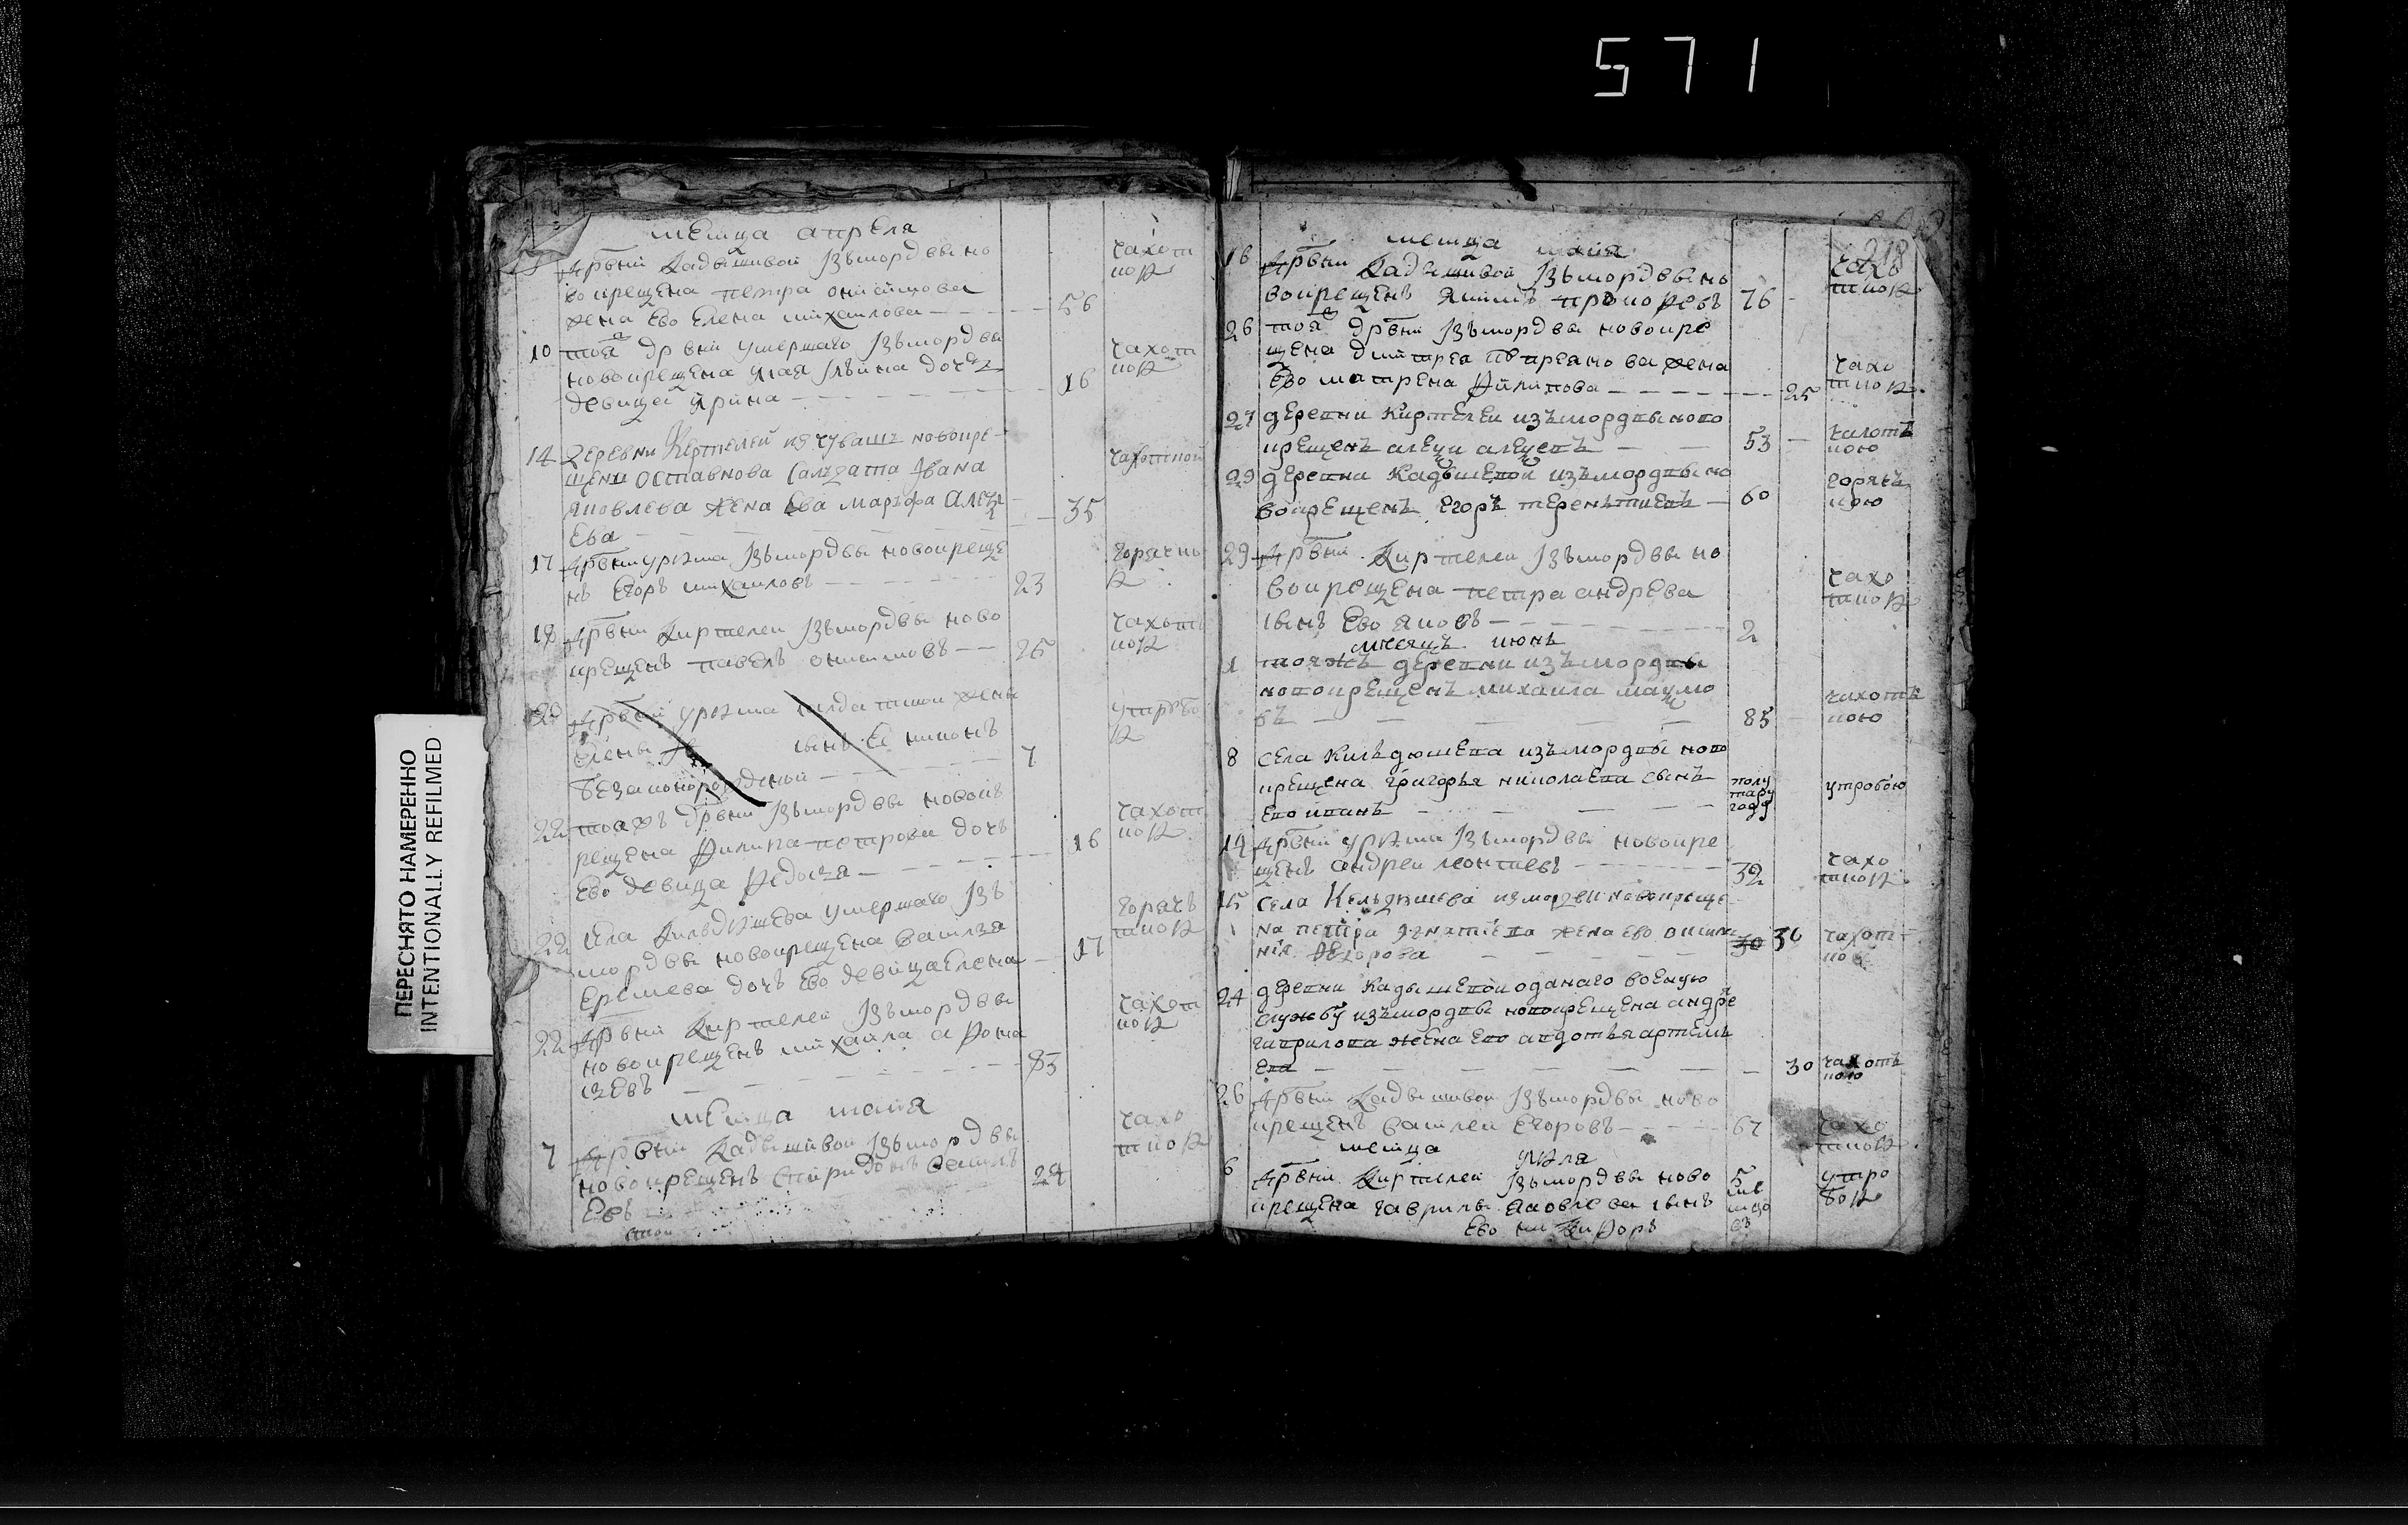 571
ПЕРЕСНЯТО НАМЕРЕННО
INTENTIONALLY REFILMED
месяца апреля
дрвни Кадышивой изъ мордвы но
вокрещена петра
жена ево Елена михаилова
56
чахот
кою
10
тоя дрвни умершаго изъ мордвы
новокрещена Ильина дочь
девица ирина
16
чахот
кою
14
Деревни Киртелей из чувашъ новокре
щена оставнова Салдата Ивана
яковлева жена Ева марфа Алеѯе
Ева
35
чахоткой
17
дрвни урюма изъ мордвы новокреще
нъ Егоръ михаиловъ
23
горячко
ю
18
дрвни Киртелеи изъ мордвы ново
крещенъ павелъ
25
чахот
кою
20
дрвни урюма салдатской жены
Елены сынъ Ее никонъ
беззаконорожденой
7
утробо
ю
22
тояжъ дрвни изъ мордвы новокъ
рещена Филипа петрова дочь
Ево девица Федосья
16
чахот
кою
22
села Кильдюшева умершаго изъ
мордвы новокрещена василья
Еремеева дочь Ево девица Елена
17
горячь
кою
22
дрвни Киртелеи изъ мордвы
новокрещенъ михаила афона
сьевъ
85
чахот
кою
месяца маия
7
дрвни Кадышивой изъ мордвы
новокрещенъ спиридонъ василь
Евъ
24
чахо
ткою
218
месяца маия
16
дрвни Кадышивой изъ мордвы но
вокрещенъ якимъ прокофевъ
76
чахо
ткою
26
тоя дрвни изъ мордвы новокре
щена дмитрея жена
Ево матрена Филипова
25
чахо
ткою
27
деревни Киртелеи изъ мордвы ново
крещенъ алеѯи алеѯевъ
53
чахотъ
кою
29
деревни Кадышевой изъ мордвы но
вокрещенъ Егоръ терентиевъ
60
горячь
кою
29
дрвни Киртелеи изъ мордвы но
вокрещена петра андрева
сынъ Ево яковъ
2
чахо
ткою
месяцъ июнь
1
тояжъ деревни изъ мордвы
новокрещенъ михаила
въ
85
чахотъ
кою
8
села Кильдюшева изъ мордвы ново
крещена григорья николаева сынъ
Ево иванъ
полу
тару
году
утробою
14
дрвни урюма изъ мордвы новокре
щенъ андреи леонтиевъ
32
чахо
ткою
15
села Кельдюшева из мордвы новокреще
на петра игнатиева жена ево
нiя Федорова
30
чахот
24
деревни Кадышевой оданаго военую
службу изъ мордвы новокрещена андре
гаврилова жена Ево авдотья артемь
Ева
30
чахотъ
кою
26
дрвни Кадышивой изъ мордвы ново
крещенъ василеи Егоровъ
67
чахо
ткою
месяца июля
6
дрвни Киртелеи изъ мордвы ново
крещена гаврилы яковлева сынъ
Ево никифоръ
5
утро
бою